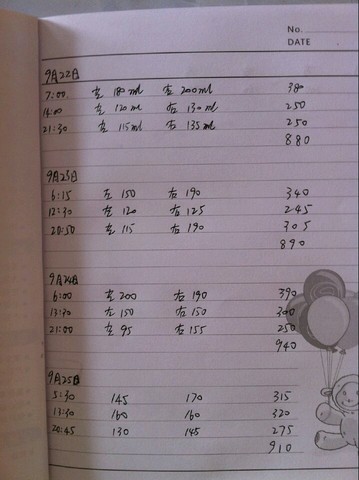 No.
DATE
9月22日
7:00 左 180ml 右 200ml 380
14:00 左 120ml 右 130ml 250
21:30 左 115ml 右 135ml 250
880
9月23日
6:15 左 150 右 190 340
12:30 左 120 右 125 245
20:50 左 115 右 190 305
890
9月24日
6:00 左 200 右 190 390
13:30 左 150 右 150 300
21:00 左 95 右 155 250
940
9月25日
5:30 145 170 315
13:30 160 160 320
20:45 130 145 275
910